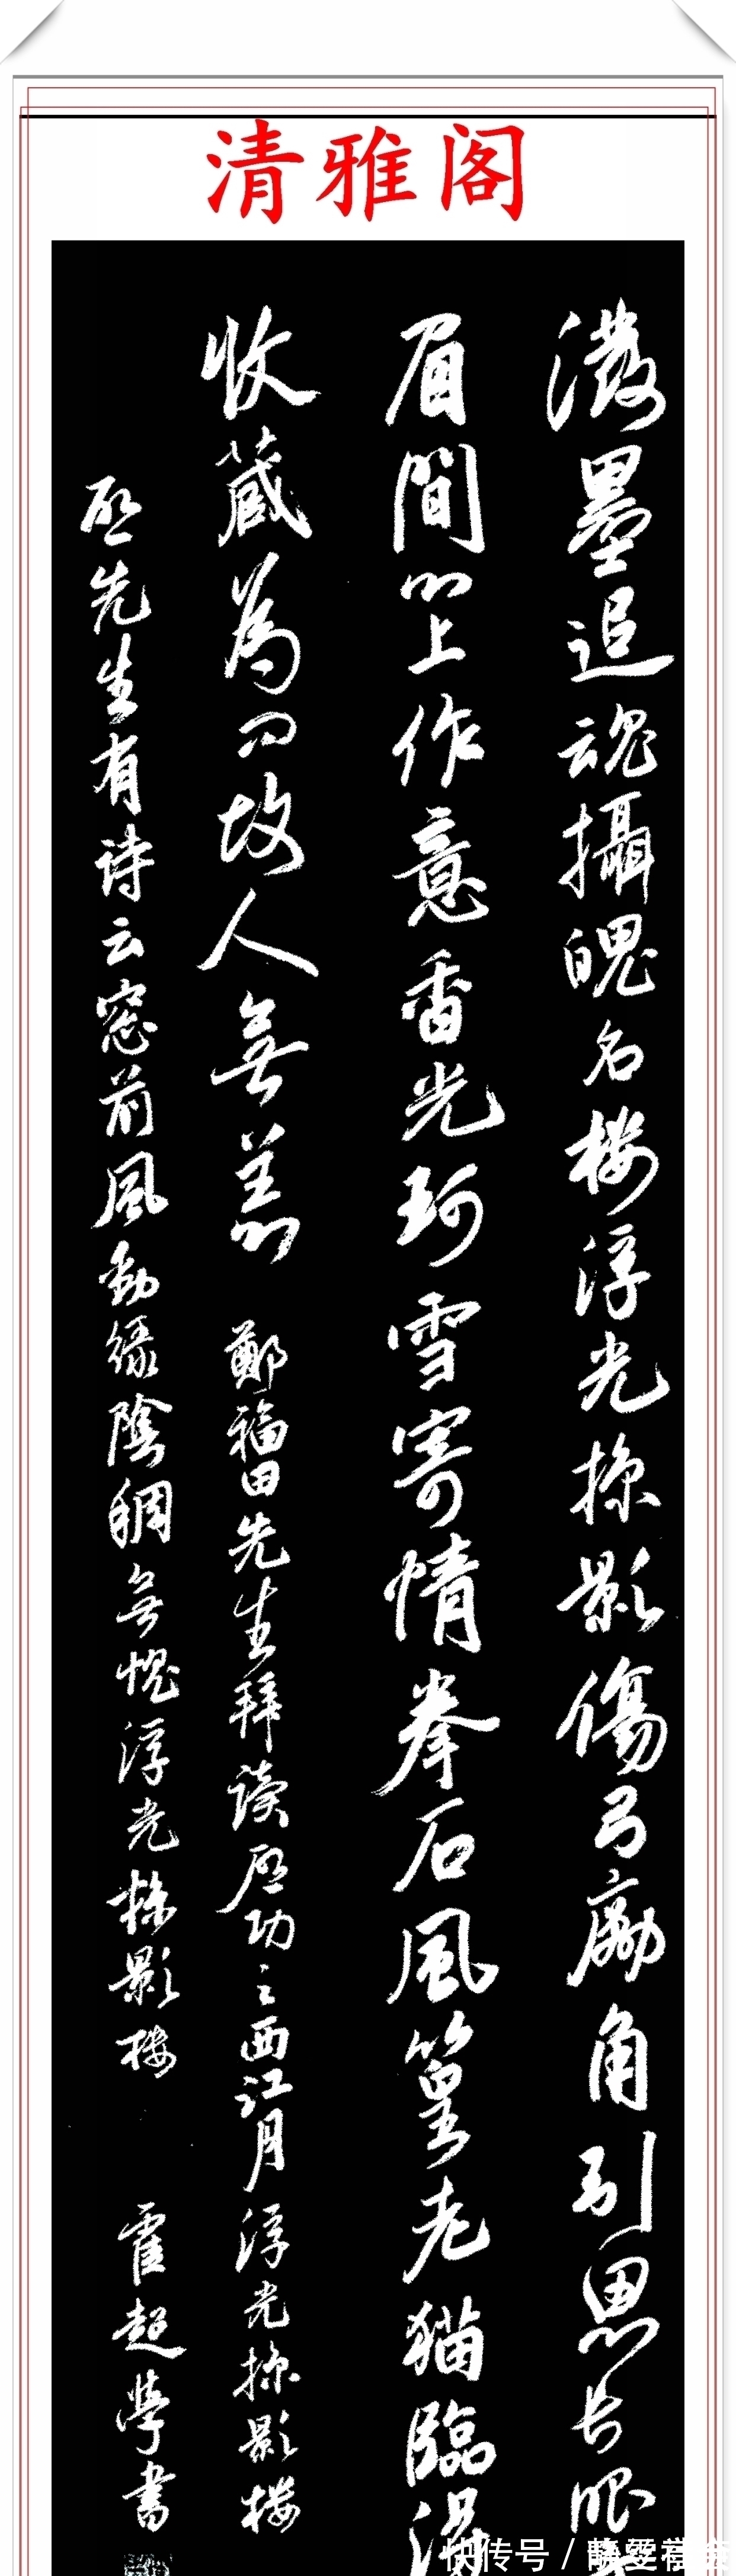 清雅阁
潑墨追魂攝魄名楼浮光掠影傷弓勵角引思长眼
眉間心上作意香光珂雪寄情拳石風篁老猫臨
收藏為问故人無恙 鄭福田先生拜读启功之西江月浮光掠影楼
启先生有诗云窓前風動绿陰稠無愧浮光掠影楼 霍超學書
快传号 /